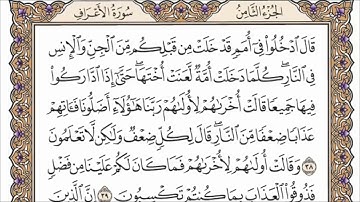 الجزء الثامن
سورة الأعراف
قَالَ ٱدْخُلُوا۟ فِىٓ أُمَمٍ قَدْ خَلَتْ مِن قَبْلِكُم مِّنَ ٱلْجِنِّ وَٱلْإِنسِ
فِى ٱلنَّارِ ۖ كُلَّمَا دَخَلَتْ أُمَّةٌ لَّعَنَتْ أُخْتَهَا ۖ حَتَّىٰٓ إِذَا ٱدَّارَكُوا۟
فِيهَا جَمِيعًا قَالَتْ أُخْرَىٰهُمْ لِأُولَىٰهُمْ رَبَّنَا هَـٰٓؤُلَآءِ أَضَلُّونَا فَـَٔاتِهِمْ
عَذَابًا ضِعْفًا مِّنَ ٱلنَّارِ ۖ قَالَ لِكُلٍّ ضِعْفٌ وَلَـٰكِن لَّا تَعْلَمُونَ
٣٨ وَقَالَتْ أُولَىٰهُمْ لِأُخْرَىٰهُمْ فَمَا كَانَ لَكُمْ عَلَيْنَا مِن فَضْلٍ
فَذُوقُوا۟ ٱلْعَذَابَ بِمَا كُنتُمْ تَكْسِبُونَ ٣٩ إِنَّ ٱلَّذِينَ